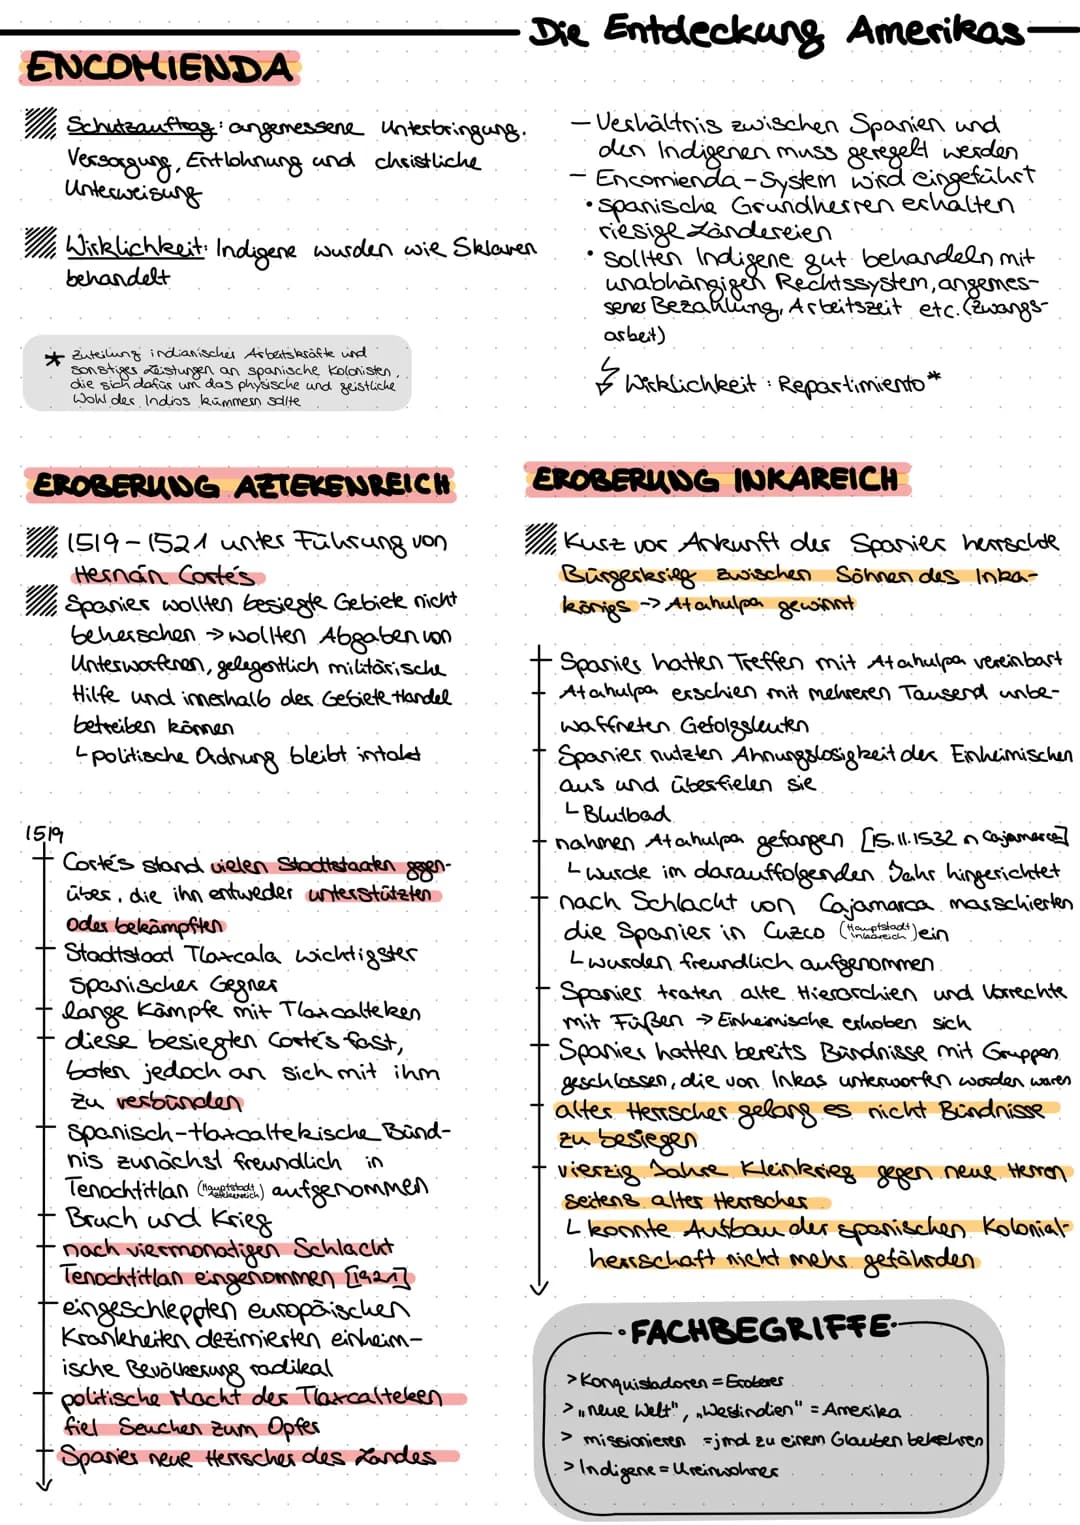 Die Entdeckung Amerikas
ENCOMIENDA
Schutzauftrag: angemessene Unterbringung,
Versorgung, Entlohnung und christliche
Unterweisung
Wirklichkeit: Indigene wurden wie Sklaven
behandelt
* Zuteilung indianischer Arbeitskräfte und
sonstiger Leistungen an spanische Kolonisten,
die sich dafür um das physische und geistliche
Wohl der Indios kümmern sollte
– Verhältnis zwischen Spanien und
den Indigenen muss geregelt werden
– Encomienda-System wird eingeführt
• spanische Grundherren erhalten
riesige Ländereien
• sollten Indigene gut behandeln mit
unabhängigen Rechtssystem, angemes-
sener Bezahlung, Arbeitszeit etc. (Zwangs-
arbeit)
Wirklichkeit: Repartimiento*
EROBERUNG AZTEKENREICH
1519-1521 unter Führung von
Hernán Cortés
Spanier wollten besiegte Gebiete nicht
beherschen → wollten Abgaben von
Unterworfenen, gelegentlich militärische
Hilfe und innerhalb der Gebiete Handel
betreiben können
↳ politische Ordnung bleibt intakt
1519
Cortés stand vielen Stadtstaaten gegen-
über, die ihn entweder unterstützten
oder bekämpften
Stadtstaat Tlaxcala wichtigster
spanischer Gegner
lange Kämpfe mit Tlaxcalteken
diese besiegten Cortés fast,
boten jedoch an sich mit ihm
zu verbünden
Spanisch-tlaxcaltekische Bünd-
nis zunächst freundlich in
Tenochtitlan (Hauptstadt Aztekenreich) aufgenommen
Bruch und Krieg
nach viermonatigen Schlacht
Tenochtitlan eingenommen [1921]
eingeschleppten europäischen
Krankheiten dezimierten einheim-
ische Bevölkerung radikal
politische Macht der Tlaxcalteken
fiel Seuchen zum Opfer
Spanier neue Herrscher des Landes
EROBERUNG INKAREICH
Kurz vor Ankunft der Spanier herrschte
Bürgerkrieg zwischen Söhnen des Inka-
königs -> Atahulpa gewinnt
Spanier hatten Treffen mit Atahulpa vereinbart
Atahulpa erschien mit mehreren Tausend unbe-
waffneten Gefolgsleuten
Spanier nutzten Ahnungslosigkeit der Einheimischen
aus und überfielen sie
↳ Blutbad
nahmen Atahulpa gefangen [15.11.1532 n Cajamarca]
↳ wurde im darauffolgenden Jahr hingerichtet
nach Schlacht von Cajamarca marschierten
die Spanier in Cuzco (Hauptstadt Inkareich) ein
↳ wurden freundlich aufgenommen
Spanier traten alte Hierarchien und Vorrechte
mit Füßen → Einheimische erhoben sich
Spanier hatten bereits Bündnisse mit Gruppen
geschlossen, die von Inkas unterworfen worden waren
alter Herrscher gelang es nicht Bündnisse
zu besiegen
vierzig Jahre Kleinkrieg gegen neue Herren
seitens alter Herrscher
↳ konnte Aufbau der spanischen Kolonial-
herrschaft nicht mehr gefährden
• FACHBEGRIFFE •
> Konquistadoren = Eroberer
> „neue Welt", „Westindien" = Amerika
> missionieren = jmd zu einem Glauben bekehren
> Indigene = Ureinwohner